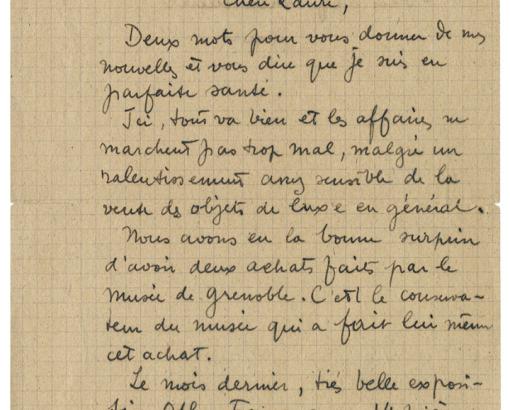 Cher Laure,
Deux mots pour vous donner de mes
nouvelles et vous dire que je suis en
parfaite santé.
Ici, tout va bien et les affaires ne
marchent pas trop mal, malgré un
ralentissement assez sensible de la
vente des objets de luxe en général.
Nous avons eu la bonne surprise
d'avoir deux achats faits par le
Musée de Grenoble. C'est le conserva-
teur du musée qui a fait lui même
cet achat.
Le mois dernier, très belle exposi-